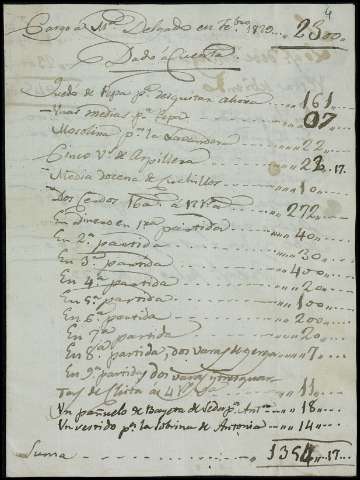 4
Cargo á Ma. Delgado en Febro. 1820 „ 2800 „
Dado á Cuenta.
Quedo de Pepa pa. desquitar ahora „ 161
Unas medias pa. Pepa „ 07
Muselina pa. la Lavandera „ 22
Cinco Vs. de Arpillera „ 22 „ 17.
Media docena de Cuchillos „ 10 „
Dos Cerdos 16 as. á 17 rs. „ 272 „
En dinero en 1ra. partida „ 40 „
En 2a. partida „ 30 „
En 3a. partida „ 400 „
En 4a. partida „ 20 „
En 5a. partida „ 100 „
En 6a. partida „ 200 „
En 7a. partida „ 20 „
En 8a. partida, dos varas de gerga „ 7 „
En 9a. partida, dos varas y
tas de Cinta á 4 „ 11 „
Un pañuelo de Bayeta de Seda pa. Anta. „ 18 „
Un vestido pa. la sobrina de Antonia „ 14 „
Suma „ 1354 „ 17 „